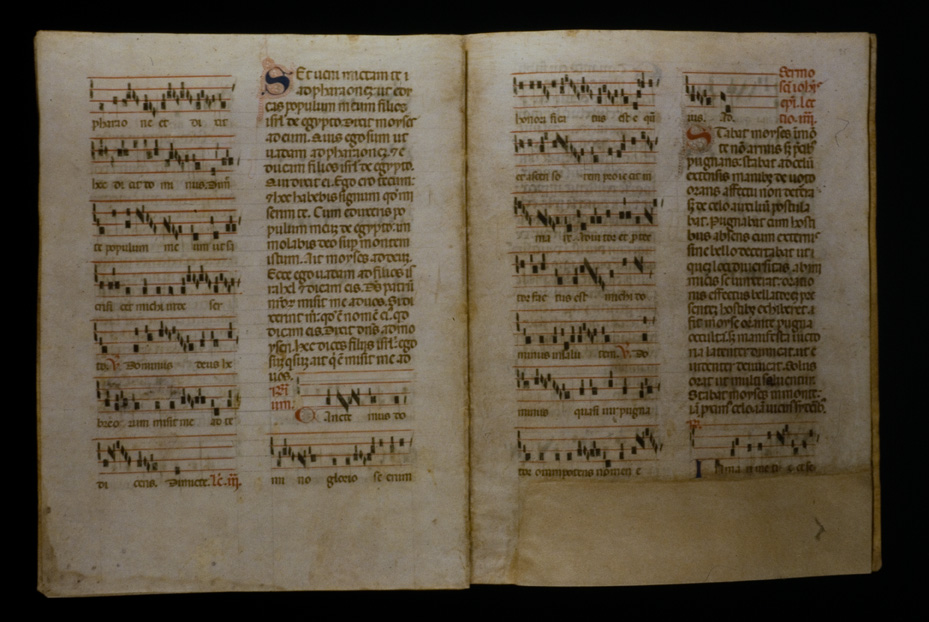 pharao ne et di cit
hec di cit do mi nus. Dimi
te populum me um ut sa
crifi cet michi inde ser
to. V. Dominus deus he
breo rum misit me ad te
di cens. Dimitte. Lc. iii.
Set veni mictam te i
ad pharaonez: ut edu
cas populum meum filios
isrl de egypto. Dixit moyses
ad eum. Quis ego sum ut
vadam ad pharaonez: et e
ducam filios isrl de egypto.
Qui dixit ei. Ego ero tecum:
et hec habebis signum qd mi
serim te. Cum eduxeris po
pulum meuz de egypto: im
molabis deo sup montem
istum. Ait moyses ad deuz.
Ecce ego vadam ad filios is
rahel et dicam eis. Ds patru
vror misit me ad vos. Si di
xerint m: qd e nome ei. qd
dicam eis. Dixit dns ad mo
ysen. hec dices filiis isrl. ego
sum qui sum: ait q e misit me ad
vos.
Rm
iiii.
Cante mus do
mi no glorio se enim
honori fica tus est equ
et ascen so rem proie cit in
ma re adiu tor et pte
tor fac tus est michi do
minus in salu tem. V. Do
minus quasi vir pugna
tor omnipotens nomen e
ius. ad.
Sermo
sci ioh
epi. lec
tio. iiii.
Stabat moyses i mo
te no armis s pcib
pugnans: stabat ad celu
extensis manibz devoto
orans affectu non dextera
s de celo auxiliu postula
bat. pugnabat cum hosti
bus absens cum externi
sine bello decertabat uti
qui loci diversitas ab ini
micis seiunxerat: oratio
nis effectus bellatorez pre
sentez hostibz exhiberet. a
fit in oyse orante pugna
occulta: s manifesta victo
ria latenter dimicat: ut e
videnter devincat. solus
orat ut multi salventur.
Stabat moyses in monte: